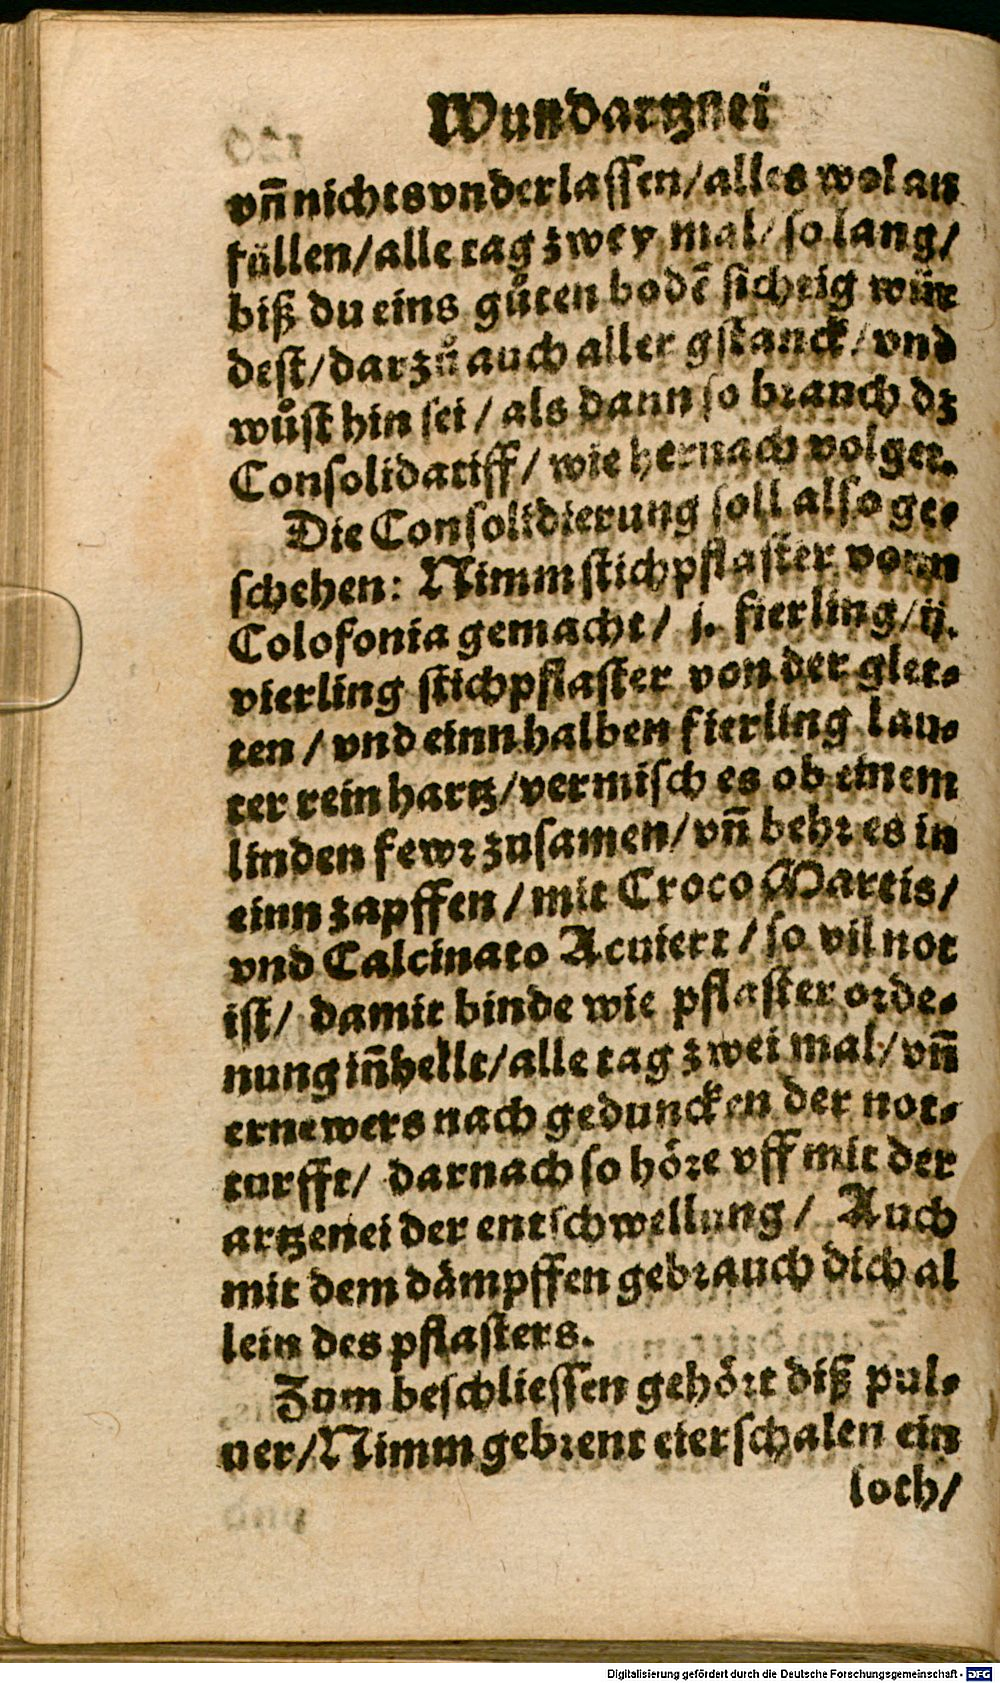 Wundartznei
vn̄ nichts vnderlassen/alles wol an
füllen/alle tag zwey mal/so lang/
biß du eins gůten bodē sichtig wür
dest/darzů auch aller gstanck/vnd
wůst hin sei/als dann so brauch dz
Consolidatiff/wie hernach volget.
Die Consolidierung soll also ge-
schehen: Nimm stichpflaster vonn
Colofonia gemacht/ j. fierling/ij.
vierling stichpflaster von der glet-
ten/vnd einn halben fierling lau-
ter rein hartz/vermisch es ob einem
linden fewr zusamen/vn̄ behr es in
einn zapffen/mit Croco Martis/
vnd Calcinato Acuiert/so vil not
ist/ damit binde wie pflaster orde-
nung in̄hellt/alle tag zwei mal/vn̄
ernewers nach geduncken der not-
turfft/ darnach so höre vff mit der
artzenei der entschwellung/ Auch
mit dem dämpffen gebrauch dich al
lein des pflasters.
Zum beschliessen gehört diß pul-
uer/Nimm gebrent eierschalen ein
loth/
Digitalisierung gefördert durch die Deutsche Forschungsgemeinschaft - DFG